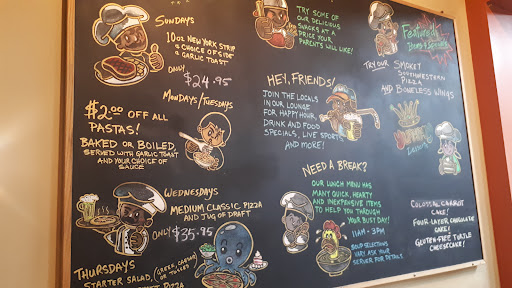 SUNDAYS
10oz NEW YORK STRIP
& CHOICE OF SIDE
& GARLIC TOAST
ONLY
$24.95
MONDAYS/TUESDAYS
$2.00 OFF ALL
PASTAS!
BAKED OR BOILED,
SERVED WITH GARLIC TOAST
AND YOUR CHOICE OF
SAUCE
WEDNESDAYS
MEDIUM CLASSIC PIZZA
AND JUG OF DRAFT
ONLY
THURSDAYS
STARTER SALAD,
PIZZA
TRY SOME OF
OUR DELICIOUS
SNACKS AT A
PRICE YOUR
PARENTS WILL LIKE!
HEY, FRIENDS!
JOIN THE LOCALS
IN OUR LOUNGE
FOR HAPPY HOUR,
DRINK AND FOOD
SPECIALS, LIVE SPORTS
AND MORE!
NEED A BREAK?
OUR LUNCH MENU HAS
MANY QUICK, HEARTY
AND INEXPENSIVE ITEMS
TO HELP YOU THROUGH
YOUR BUSY DAY!
11AM - 3PM
SOUP SELECTIONS
VARY, ASK YOUR
SERVER FOR DETAILS.
Featured
TRY OUR SMOKEY
SOUTHWESTERN
PIZZA
AND BONELESS WINGS
COLOSSAL CARROT
CAKE!
FOUR LAYER CHOCOLATE
CAKE!
GLUTEN-FREE TURTLE
CHEESECAKE!